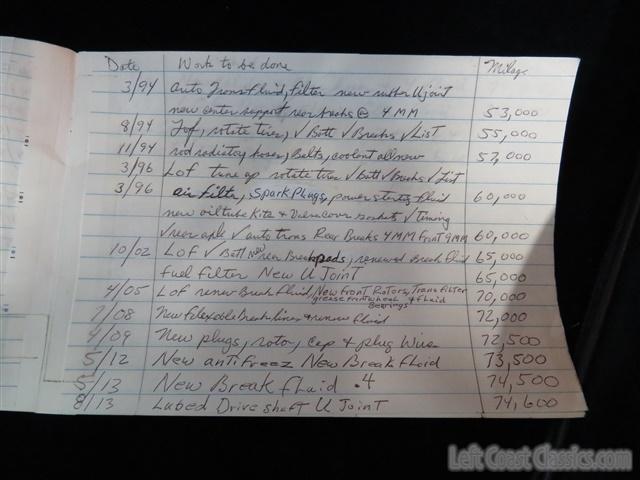 Date Work to be done Milage
3/94 Auto Trans Fluid, Filter new rubber U joint
new center support rear breaks @ 4 MM 53,000
8/94 Lof, rotate tires, √ Batt √ Breaks √ List 55,000
11/94 rod radiator hoses, Belts, coolant all new 57,000
3/96 Lof tune up rotate tires √ Batt √ Breaks √ List
3/96 air filter, Spark Plugs, power stering fluid 60,000
new oil tube Kits & Valve cover gaskets √ Timing
√ rear axle √ auto trans Rear Breaks 4MM Front 9MM 60,000
10/02 LOF √ Batt New rear Breakpads, renewed Break fluid 65,000
fuel Filter New U Joint 65,000
4/05 LOF renew Break Fluid, New Front Rotors, Trans filter & fluid 70,000
grease Front wheel Bearings
7/08 New Flexable Break lines & renew fluid 72,000
4/09 New plugs, rotor, cap & plug Wires 72,500
5/12 New antifreez New Break fluid 73,500
5/13 New Break fluid .4 74,500
8/13 Lubed Drive shaft U Joint 74,600
Left Coast Classics.com